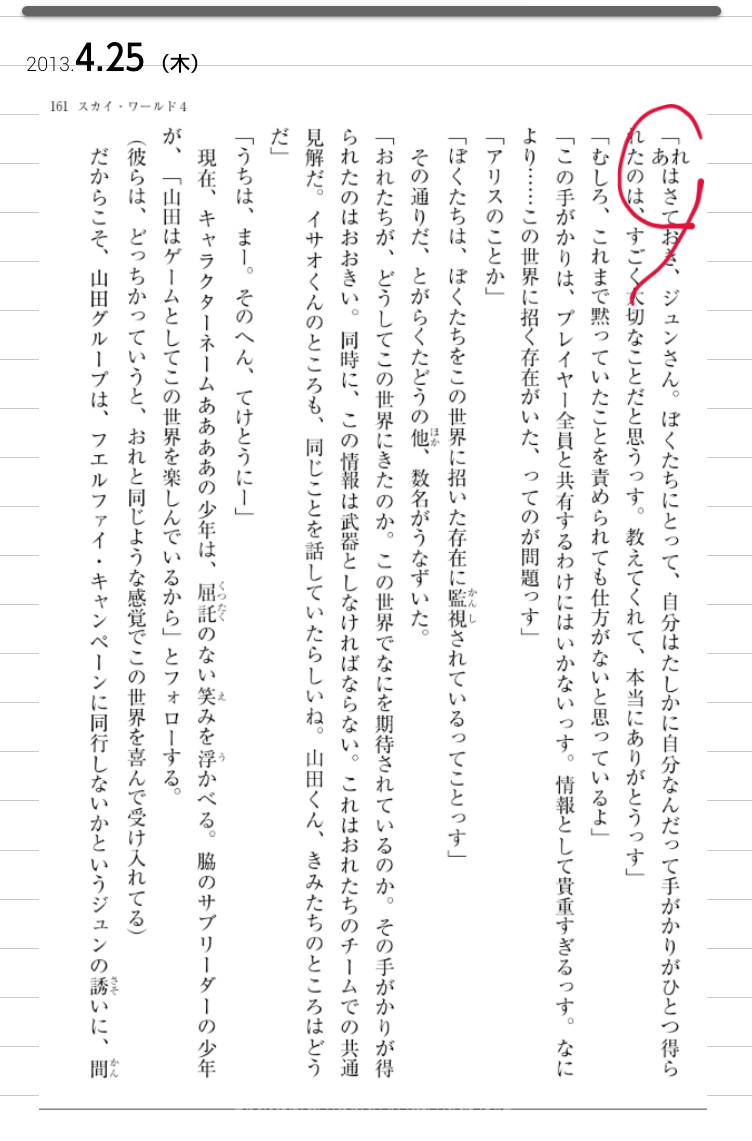 2013.4.25（木）
161 スカイ・ワールド4
「あれはさておき、ジュンさん。ぼくたちにとって、自分はたしかに自分なんだって手がかりがひとつ得ら
れたのは、すごく大切なことだと思うっす。教えてくれて、本当にありがとうっす」
「むしろ、これまで黙っていたことを責められても仕方がないと思っているよ」
「この手がかりは、プレイヤー全員と共有するわけにはいかないっす。情報として貴重すぎるっす。なに
より……この世界に招く存在がいた、ってのが問題っす」
「アリスのことか」
「ぼくたちは、ぼくたちをこの世界に招いた存在に監視されているってことっす」
その通りだ、とがらくたどうの他、数名がうなずいた。
「おれたちが、どうしてこの世界にきたのか。この世界でなにを期待されているのか。その手がかりが得
られたのはおおきい。同時に、この情報は武器としなければならない。これはおれたちのチームでの共通
見解だ。イサオくんのところも、同じことを話していたらしいね。山田くん、きみたちのところはどう
だ」
「うちは、まー。そのへん、てけとうにー」
現在、キャラクターネームああああの少年は、屈託のない笑みを浮かべる。脇のサブリーダーの少年
が、「山田はゲームとしてこの世界を楽しんでいるから」とフォローする。
（彼らは、どっちかっていうと、おれと同じような感覚でこの世界を喜んで受け入れてる）
だからこそ、山田グループは、フエルファイ・キャンペーンに同行しないかというジュンの誘いに、間